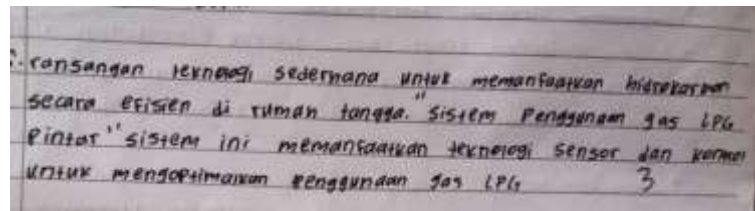 ransangan teknologi sederhana untuk memanfaatkan hidrokarbon
secara efisien di rumah tangga. "sistem Penggunaan gas LPG
Pintar" sistem ini memanfaatkan teknologi sensor dan
untuk mengoptimalkan penggunaan gas LPG 3